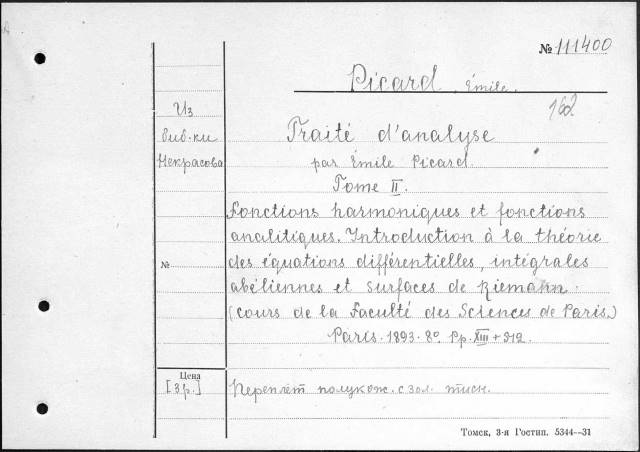 № 111400
Picard, Émile.
Из
биб-ки
Некрасова
Traité d'analyse
par Émile Picard.
Tome II.
Fonctions harmoniques et fonctions
analitiques. Introduction à la théorie
des équations différentielles, intégrales
abéliennes et surfaces de Riemann.
(cours de la Faculté des Sciences de Paris.)
Paris. 1893. 8º. Pp. XIII +
№
Цена
[3 р.]
Переплёт полукож. с зол. тисн.
Томск, 3-я Гостип. 5344—31